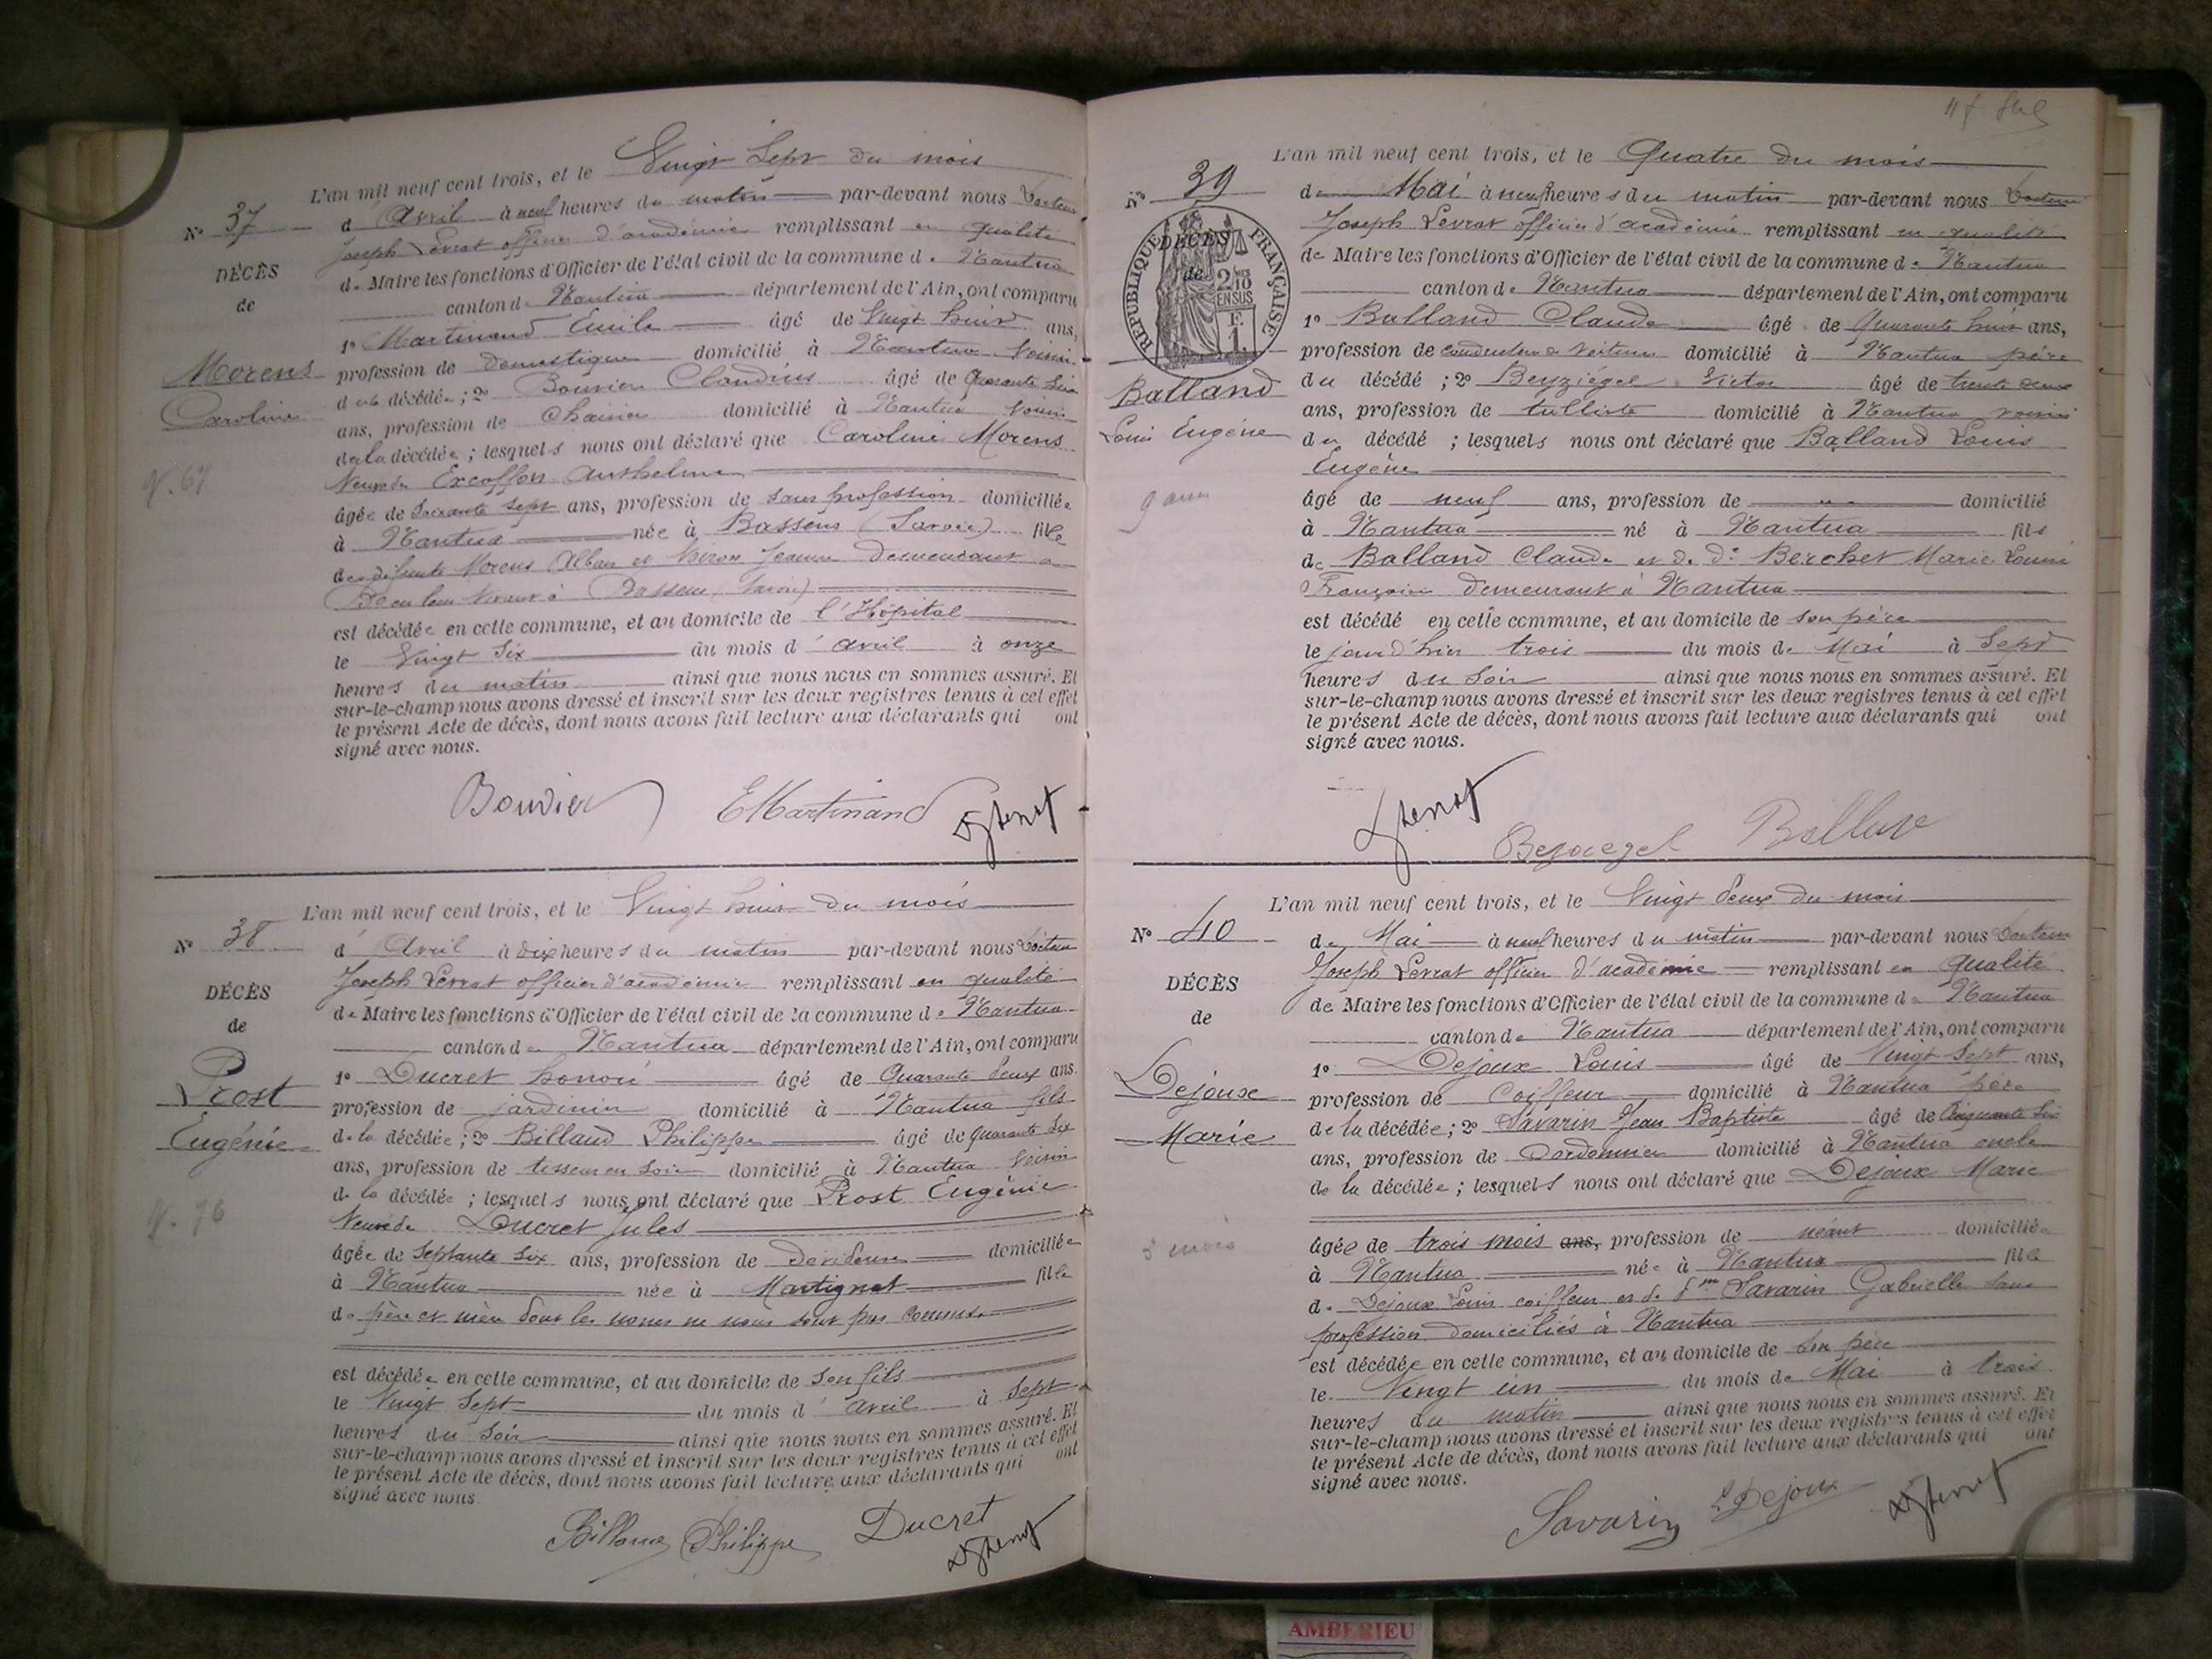 L'an mil neuf cent trois, et le Vingt Sept du mois
N° 37 d'Avril à neuf heures du matin par-devant nous Docteur
Joseph Levrat officier d'académie remplissant en qualité
DÉCÈS de Maire les fonctions d'Officier de l'état civil de la commune de Nantua
de canton de Nantua département de l'Ain, ont comparu
1° Martinand Emile âgé de Vingt huit ans,
Morens profession de domestique domicilié à Nantua voisin
Caroline de la décédée ; 2° Bouvier Claudius âgé de Quarante
ans, profession de domicilié à Nantua voisin
de la décédée ; lesquels nous ont déclaré que Caroline Morens
V. 67 Veuve de Excoffon Anthelme
âgée de Soixante sept ans, profession de Sans profession domiciliée
à Nantua née à Bassens (Savoie) fille
des défunts Morens Alban et Jeanne demeurant
de leur vivant à Bassens (Savoie)
est décédée en cette commune, et au domicile de l'Hôpital
le Vingt Six du mois d'avril à onze
heures du matin ainsi que nous nous en sommes assuré. Et
sur-le-champ nous avons dressé et inscrit sur les deux registres tenus à cet effet
le présent Acte de décès, dont nous avons fait lecture aux déclarants qui ont
signé avec nous.
Bouvier EMartinand
L'an mil neuf cent trois, et le Vingt huit du mois
N° 38 d'Avril à dix heures du matin par-devant nous Docteur
Joseph Levrat officier d'académie remplissant en qualité
DÉCÈS de Maire les fonctions d'Officier de l'état civil de la commune de Nantua
de canton de Nantua département de l'Ain, ont comparu
1° Ducret honoré âgé de Quarante deux ans
Prost profession de jardinier domicilié à Nantua fils
Eugénie de la décédée ; 2° Billaud Philippe âgé de Quarante six
ans, profession de tisseur en soie domicilié à Nantua voisin
de la décédée ; lesquels nous ont déclaré que Prost Eugénie
V. 76 Veuve de Ducret Jules
âgée de Septante six ans, profession de Devideuse domiciliée
à Nantua née à Martignat fille
de père et mère dont les noms ne nous sont pas connus
est décédée en cette commune, et au domicile de son fils
le Vingt Sept du mois d'avril à sept
heures du Soir ainsi que nous nous en sommes assuré. Et
sur-le-champ nous avons dressé et inscrit sur les deux registres tenus à cet effet
le présent Acte de décès, dont nous avons fait lecture aux déclarants qui ont
signé avec nous
Billaud Philippe Ducret
L'an mil neuf cent trois, et le Quatre du mois
N° 39 de Mai à neuf heures du matin par-devant nous Docteur
Joseph Levrat officier d'académie remplissant en qualité
DÉCÈS de Maire les fonctions d'Officier de l'état civil de la commune de Nantua
de canton de Nantua département de l'Ain, ont comparu
RÉPUBLIQUE FRANÇAISE
2/10 EN SUS
F. 1.
1° Balland Claude âgé de Quarante huit ans,
profession de conducteur de voitures domicilié à Nantua père
Balland du décédé ; 2° Beyziégel Victor âgé de trente deux
ans, profession de tulliste domicilié à Nantua voisin
Louis Eugène du décédé ; lesquels nous ont déclaré que Balland Louis
Eugène
9 ans âgé de neuf ans, profession de domicilié
à Nantua né à Nantua fils
de Balland Claude et de de Berchet Marie Louise
Françoise demeurant à Nantua
est décédé en cette commune, et au domicile de son père
le jour d'hier trois du mois de Mai à Sept
heures du Soir ainsi que nous nous en sommes assuré. Et
sur-le-champ nous avons dressé et inscrit sur les deux registres tenus à cet effet
le présent Acte de décès, dont nous avons fait lecture aux déclarants qui ont
signé avec nous.
Beyziegel Balland
L'an mil neuf cent trois, et le Vingt deux du mois
N° 40 de Mai à neuf heures du matin par-devant nous Docteur
Joseph Levrat officier d'académie remplissant en qualité
DÉCÈS de Maire les fonctions d'Officier de l'état civil de la commune de Nantua
de canton de Nantua département de l'Ain, ont comparu
1° Dejoux Louis âgé de Vingt Sept ans,
Dejoux profession de Coiffeur domicilié à Nantua père
Marie de la décédée ; 2° Savarin Jean Baptiste âgé de Cinquante six
ans, profession de Cordonnier domicilié à Nantua oncle
de la décédée ; lesquels nous ont déclaré que Dejoux Marie
3 mois âgée de trois mois ans, profession de néant domiciliée
à Nantua née à Nantua fille
de Dejoux Louis coiffeur et de Savarin Gabrielle sans
profession domiciliés à Nantua
est décédée en cette commune, et au domicile de son père
le Vingt un du mois de Mai à trois
heures du matin ainsi que nous nous en sommes assuré. Et
sur-le-champ nous avons dressé et inscrit sur les deux registres tenus à cet effet
le présent Acte de décès, dont nous avons fait lecture aux déclarants qui ont
signé avec nous.
Savarin L Dejoux
AMBERIEU